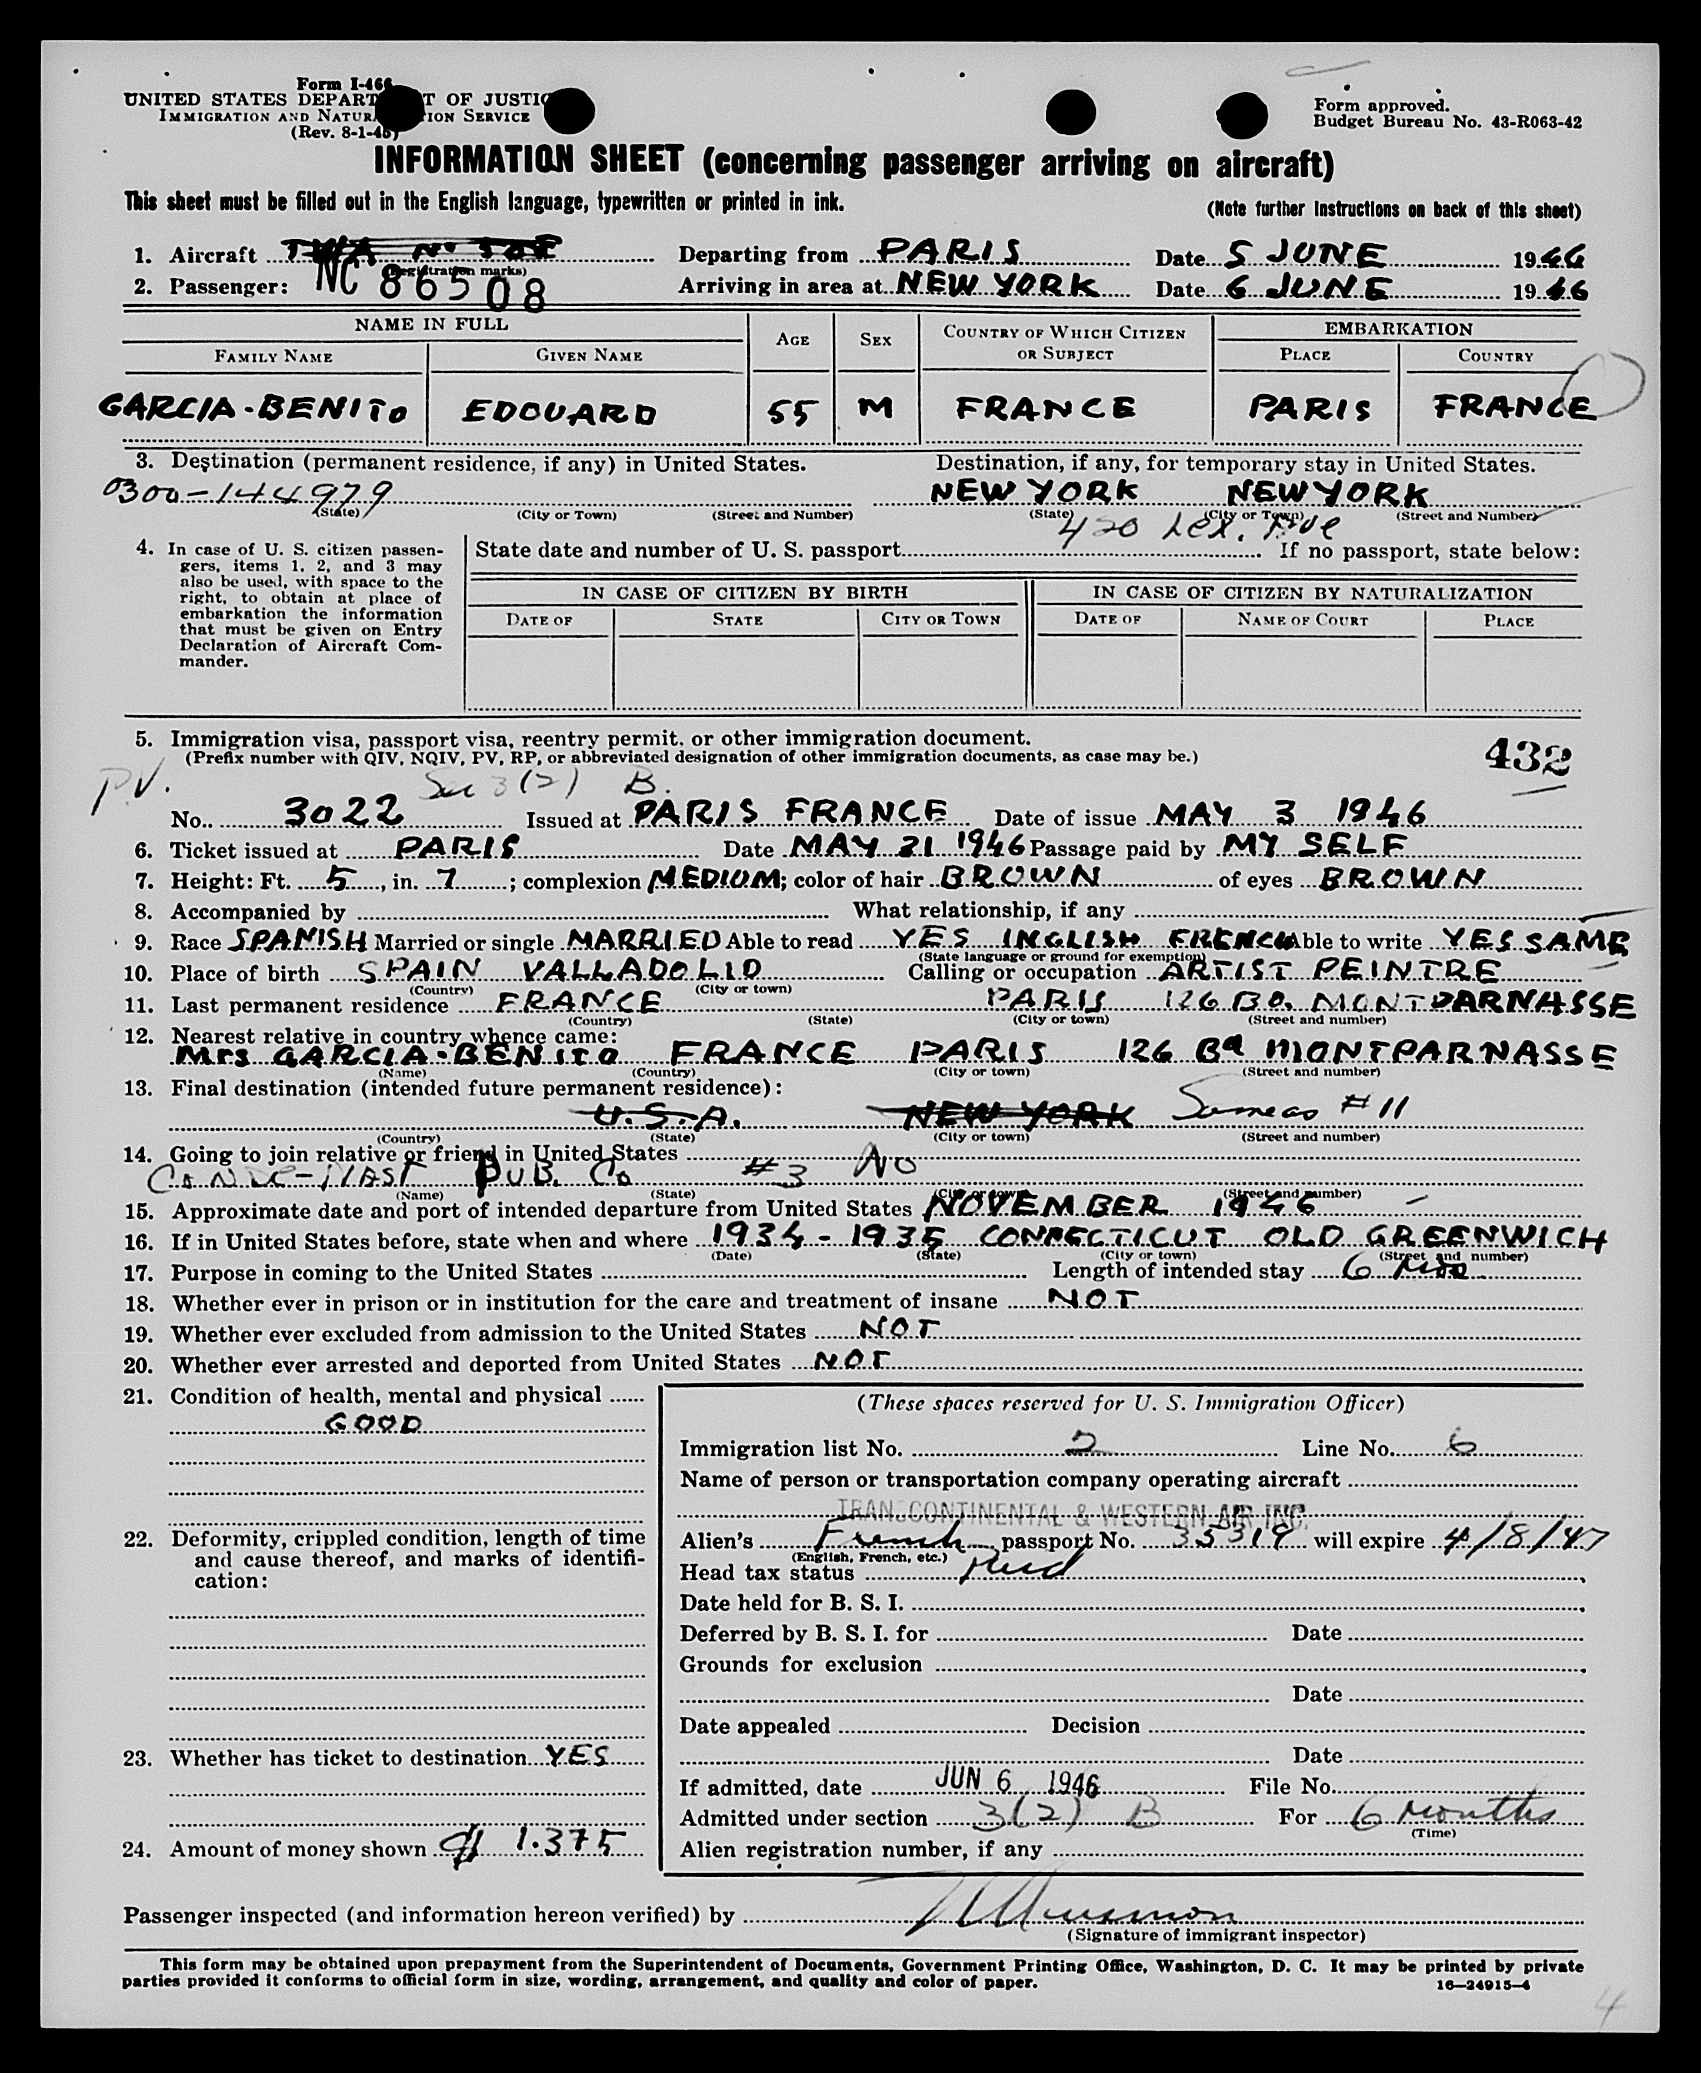 Form I-466
UNITED STATES DEPARTMENT OF JUSTICE
IMMIGRATION AND NATURALIZATION SERVICE
(Rev. 8-1-45)
Form approved.
Budget Bureau No. 43-R063-42
INFORMATION SHEET (concerning passenger arriving on aircraft)
This sheet must be filled out in the English language, typewritten or printed in ink.
(Note further instructions on back of this sheet)
1. Aircraft TWA Departing from PARIS Date 5 JUNE 1946
(Registration marks)
2. Passenger: NC 86508 Arriving in area at NEW YORK Date 6 JUNE 1946
NAME IN FULL AGE SEX COUNTRY OF WHICH CITIZEN OR SUBJECT EMBARKATION
FAMILY NAME GIVEN NAME PLACE COUNTRY
GARCIA-BENITO EDOUARD 55 M FRANCE PARIS FRANCE
3. Destination (permanent residence, if any) in United States. Destination, if any, for temporary stay in United States.
0300-144979 NEW YORK NEW YORK
(State) (City or Town) (Street and Number) (State) (City or Town) (Street and Number)
420 Lex. Ave
4. In case of U. S. citizen passen-
gers, items 1, 2, and 3 may
also be used, with space to the
right, to obtain at place of
embarkation the information
that must be given on Entry
Declaration of Aircraft Com-
mander.
State date and number of U. S. passport If no passport, state below:
IN CASE OF CITIZEN BY BIRTH IN CASE OF CITIZEN BY NATURALIZATION
DATE OF STATE CITY OR TOWN DATE OF NAME OF COURT PLACE
5. Immigration visa, passport visa, reentry permit, or other immigration document.
(Prefix number with QIV, NQIV, PV, RP, or abbreviated designation of other immigration documents, as case may be.)
432
P.V. Sec 3(2) B.
No. 3022 Issued at PARIS FRANCE Date of issue MAY 3 1946
6. Ticket issued at PARIS Date MAY 21 1946 Passage paid by MY SELF
7. Height: Ft. 5, in. 7; complexion MEDIUM; color of hair BROWN of eyes BROWN
8. Accompanied by What relationship, if any
9. Race SPANISH Married or single MARRIED Able to read YES INGLISH FRENCH Able to write YES SAME
(State language or ground for exemption)
10. Place of birth SPAIN VALLADOLID Calling or occupation ARTIST PEINTRE
(Country) (City or town)
11. Last permanent residence FRANCE PARIS 126 BD. MONTPARNASSE
(Country) (State) (City or town) (Street and number)
12. Nearest relative in country whence came:
Mrs GARCIA-BENITO FRANCE PARIS 126 Bd MONTPARNASSE
(Name) (Country) (City or town) (Street and number)
13. Final destination (intended future permanent residence):
U.S.A. NEW YORK Same as #11
(Country) (State) (City or town) (Street and number)
14. Going to join relative or friend in United States
CONDE-NAST PUB. Co #3 NO
(Name) (State) (City or town) (Street and number)
15. Approximate date and port of intended departure from United States NOVEMBER 1946
16. If in United States before, state when and where 1934 - 1935 CONNECTICUT OLD GREENWICH
(Date) (State) (City or town) (Street and number)
17. Purpose in coming to the United States Length of intended stay 6 mos.
18. Whether ever in prison or in institution for the care and treatment of insane NOT
19. Whether ever excluded from admission to the United States NOT
20. Whether ever arrested and deported from United States NOT
21. Condition of health, mental and physical
GOOD
22. Deformity, crippled condition, length of time
and cause thereof, and marks of identifi-
cation:
23. Whether has ticket to destination YES
24. Amount of money shown $ 1.375
(These spaces reserved for U. S. Immigration Officer)
Immigration list No. 2 Line No. 6
Name of person or transportation company operating aircraft
TRANSCONTINENTAL & WESTERN AIR INC.
Alien's French passport No. 35319 will expire 4/8/47
(English, French, etc.)
Head tax status Paid
Date held for B. S. I.
Deferred by B. S. I. for Date
Grounds for exclusion
Date
Date appealed Decision
Date
If admitted, date JUN 6 1946 File No.
Admitted under section 3(2) B For 6 months
(Time)
Alien registration number, if any
Passenger inspected (and information hereon verified) by
(Signature of immigrant inspector)
This form may be obtained upon prepayment from the Superintendent of Documents, Government Printing Office, Washington, D. C. It may be printed by private
parties provided it conforms to official form in size, wording, arrangement, and quality and color of paper.
16—24915-4
4